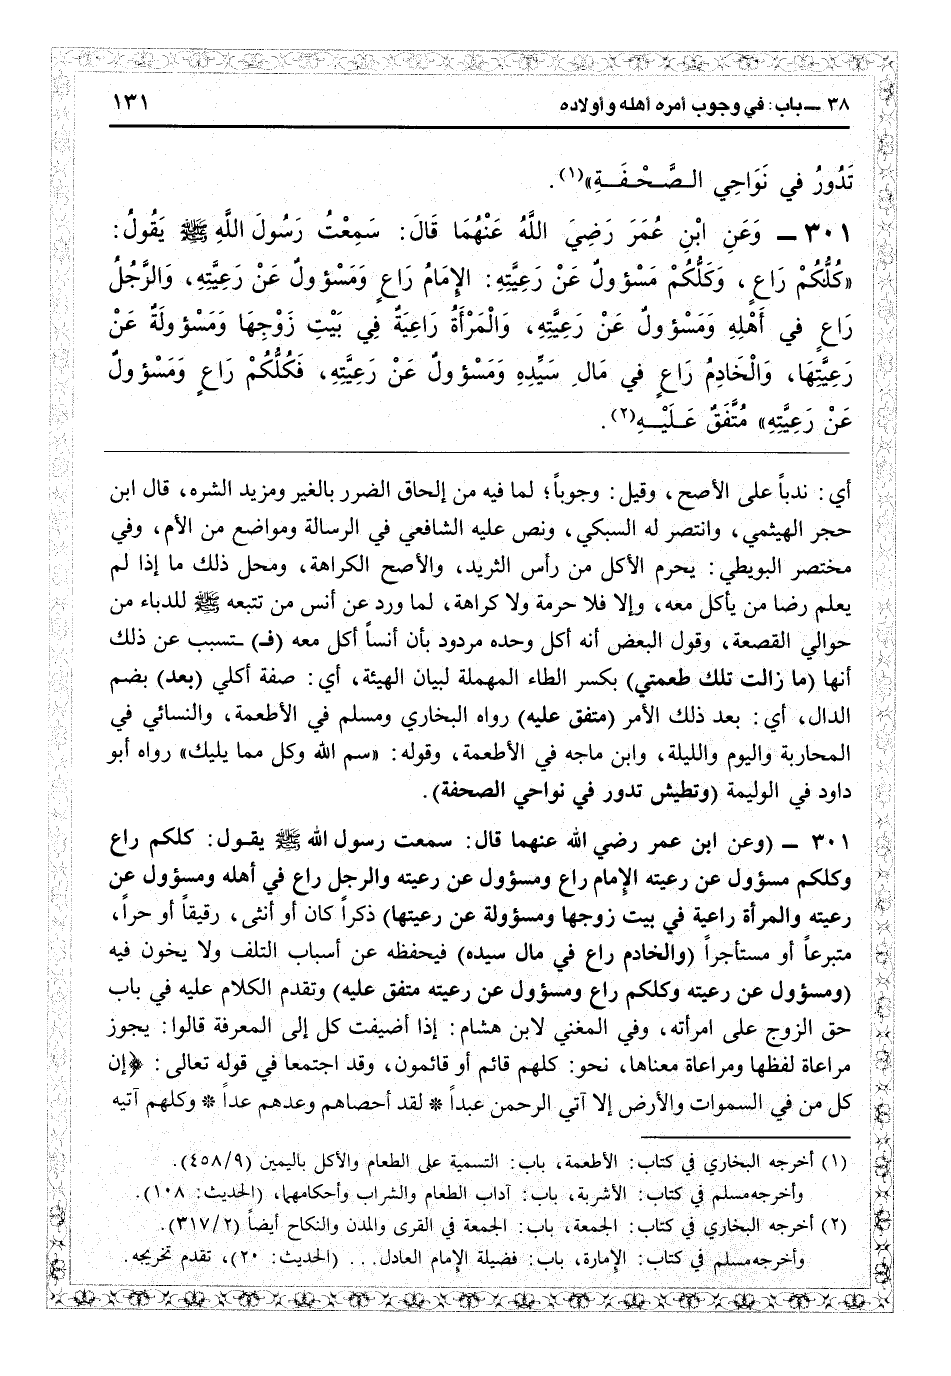 ٣٨ ــ باب: في وجوب أمره أهله وأولاده ١٣١
تَدُورُ في نَوَاحِي الـصَّـحْـفَـةِ»(١).
٣٠١ ــ وَعَنِ ابْنِ عُمَرَ رَضِيَ اللَّهُ عَنْهُمَا قَالَ: سَمِعْتُ رَسُولَ اللَّهِ ﷺ يَقُولُ:
«كُلُّكُمْ رَاعٍ، وَكُلُّكُمْ مَسْؤولٌ عَنْ رَعِيَّتِهِ: الإمَامُ رَاعٍ وَمَسْؤولٌ عَنْ رَعِيَّتِهِ، وَالرَّجُلُ
رَاعٍ في أَهْلِهِ وَمَسْؤولٌ عَنْ رَعِيَّتِهِ، وَالْمَرْأَةُ رَاعِيَةٌ فِي بَيْتِ زَوْجِهَا وَمَسْؤولَةٌ عَنْ
رَعِيَّتِهَا، وَالْخَادِمُ رَاعٍ في مَالِ سَيِّدِهِ وَمَسْؤولٌ عَنْ رَعِيَّتِهِ، فَكُلُّكُمْ رَاعٍ وَمَسْؤولٌ
عَنْ رَعِيَّتِهِ» مُتَّفَقٌ عَـلَيْـهِ(٢).
أي: ندباً على الأصح، وقيل: وجوباً؛ لما فيه من إلحاق الضرر بالغير ومزيد الشره، قال ابن
حجر الهيثمي، وانتصر له السبكي، ونص عليه الشافعي في الرسالة ومواضع من الأم، وفي
مختصر البويطي: يحرم الأكل من رأس الثريد، والأصح الكراهة، ومحل ذلك ما إذا لم
يعلم رضا من يأكل معه، وإلا فلا حرمة ولا كراهة، لما ورد عن أنس من تتبعه ﷺ للدباء من
حوالي القصعة، وقول البعض أنه أكل وحده مردود بأن أنساً أكل معه (فـ) ـتسبب عن ذلك
أنها (ما زالت تلك طعمتي) بكسر الطاء المهملة لبيان الهيئة، أي: صفة أكلي (بعد) بضم
الدال، أي: بعد ذلك الأمر (متفق عليه) رواه البخاري ومسلم في الأطعمة، والنسائي في
المحاربة واليوم والليلة، وابن ماجه في الأطعمة، وقوله: «سم الله وكل مما يليك» رواه أبو
داود في الوليمة (وتطيش تدور في نواحي الصحفة).
٣٠١ ــ (وعن ابن عمر رضي الله عنهما قال: سمعت رسول الله ﷺ يقـول: كلكم راع
وكلكم مسؤول عن رعيته الإمام راع ومسؤول عن رعيته والرجل راع في أهله ومسؤول عن
رعيته والمرأة راعية في بيت زوجها ومسؤولة عن رعيتها) ذكراً كان أو أنثى، رقيقاً أو حراً،
متبرعاً أو مستأجراً (والخادم راع في مال سيده) فيحفظه عن أسباب التلف ولا يخون فيه
(ومسؤول عن رعيته وكلكم راع ومسؤول عن رعيته متفق عليه) وتقدم الكلام عليه في باب
حق الزوج على امرأته، وفي المغني لابن هشام: إذا أضيفت كل إلى المعرفة قالوا: يجوز
مراعاة لفظها ومراعاة معناها، نحو: كلهم قائم أو قائمون، وقد اجتمعا في قوله تعالى: ﴿إن
كل من في السموات والأرض إلا آتي الرحمن عبداً * لقد أحصاهم وعدهم عداً * وكلهم آتيه
(١) أخرجه البخاري في كتاب: الأطعمة، باب: التسمية على الطعام والأكل باليمين (٤٥٨/٩).
وأخرجه مسلم في كتاب: الأشربة، باب: آداب الطعام والشراب وأحكامهما، (الحديث: ١٠٨).
(٢) أخرجه البخاري في كتاب: الجمعة، باب: الجمعة في القرى والمدن والنكاح أيضاً (٣١٧/٢).
وأخرجه مسلم في كتاب: الإمارة، باب: فضيلة الإمام العادل... (الحديث: ٢٠)، تقدم تخريجه.